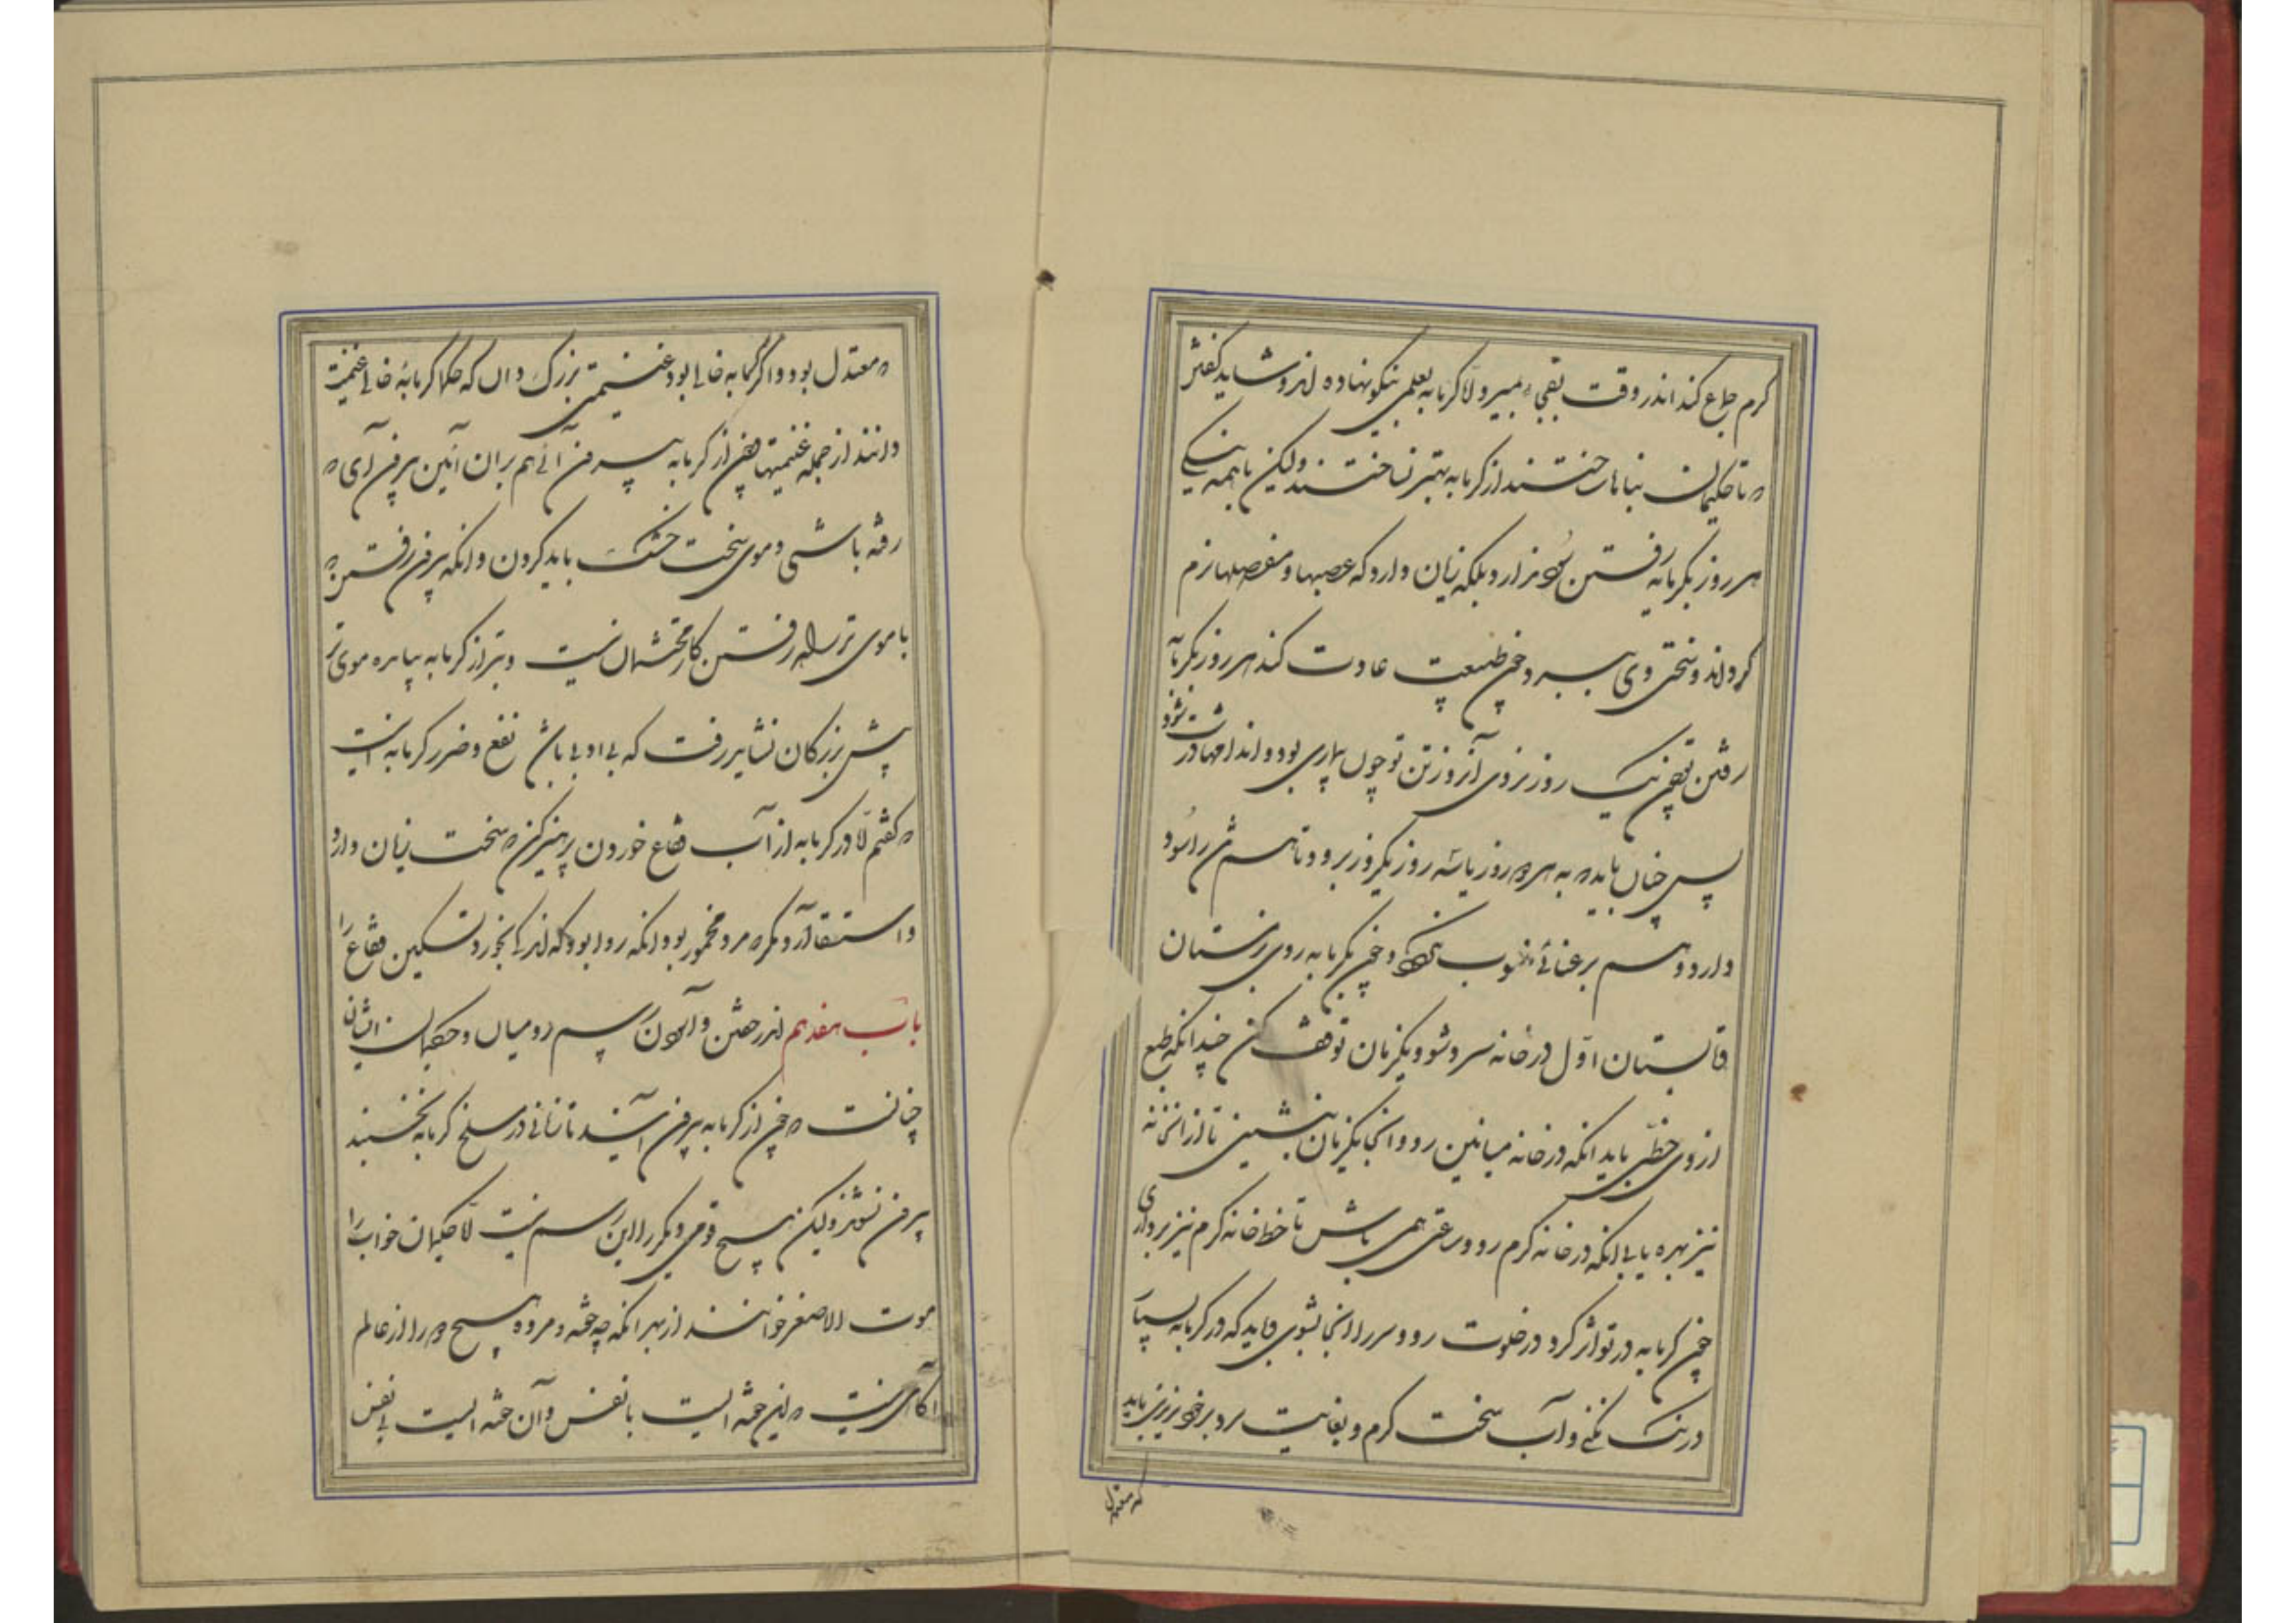 گرم جماع کند اندر وقت بمیرد الا گرمابه بعلمی نیکو نهاده اند و شاید گفتن
که تا حکیمان بناها ساختند از گرمابه بهتر نساختند ولیکن با همه نیکی
هر روز بگرمابه رفتن سود ندارد بلکه زیان دارد که عصبها و مفصلها نرم
گرداند و سختی وی ببرد و چون طبیعت عادت کند هر روز بگرمابه
رفتن چون یک روز نروی آنروز تن تو چون بیماری بود و اندامها درشت شود
پس چنان باید که به هر دو روز یا سه روز یکروز برود تا هم تن را سود
دارد و هم برعنائی منسوب نکند و چون بگرمابه روی زمستان
و تابستان اول در خانه سرد شو و یکزمان توقف کن چندانکه طبع
از وی حظی یابد آنکه در خانه میانین رو و آنجا یکزمان بنشین تا از آن خانه
نیز بهره یابی آنکه در خانه گرم رو و ساعتی همی باش تا حظ خانه گرم نیز برداری
چون گرمابه در تو اثر کرد در خلوت رو و سر را آنجا بشوی و باید که در گرمابه بسیار
درنگ نکنی و آب سخت گرم و بغایت سرد بر خود نریزی باید
که معتدل
که معتدل بود و اگر گرمابه خالی بود غنیمتی بزرگ دان که حکما گرمابهٔ خالی غنیمت
دانند از جمله غنیمتها چون از گرمابه بیرون آئی هم بران آئین بیرون آی که
رفته باشی و موی سخت خشک باید کردن و آنکه بیرون رفتن که
با موی تر براه رفتن کار محتشمان نیست و نیز از گرمابه بیامده موی تر
پیش بزرگان نشاید رفت که بی ادبی باشد نفع و ضرر گرمابه اینست
که گفتم الا در گرمابه از آب فقاع خوردن پرهیز کن که سخت زیان دارد
و استسقا آرد مگر که مرد مخمور بود آنکه روا بود که اندکی بخورد تسکین فقاع را
باب هفدهم اندر خفتن و آسودن رسم رومیان و حکیمان ایشان
چنانست که چون از گرمابه بیرون آیند تا زمانی در مسلخ گرمابه نخسبند
بیرون نشوند ولیکن هیچ قومی دیگر را این رسم نیست الا حکیمان خواب را
موت الاصغر خوانند از بهر آنکه چه خفته و مرده هیچ دو را از عالم
آگاهی نیست که این خفته ایست با نفس و آن خفته ایست بی نفس